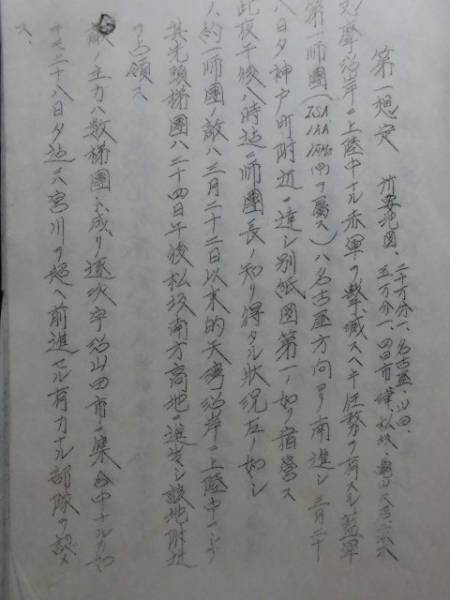 第一想定 所要地図、二十万分一、名古屋、山田、
五万分一、四日市、津、松坂、亀山
尾勢沿岸ニ上陸中ナル赤軍ヲ撃滅スヘキ任務ヲ有スル藍軍
第一師團(ヲ属ス)ハ名古屋方向ヨリ南進シ三月二十
八日夕神戸町附近ニ達シ別紙図第一ノ如ク宿営ス
此夜午後八時迄ニ師團長ノ知リ得タル状況左ノ如シ
約一師團ノ敵ハ三月二十二日以来的矢湾沿岸ニ上陸中ニシテ
其先頭梯團ハ二十四日午後松坂南方高地ニ進出シ該地附近
ヲ占領ス
敵ノ主力ハ数梯團ト成リ逐次宇治山田市ニ集合中ナルカ如
ク二十八日夕迄ニハ宮川ヲ超ヘ前進セル有力ナル部隊ヲ認メ
ス、